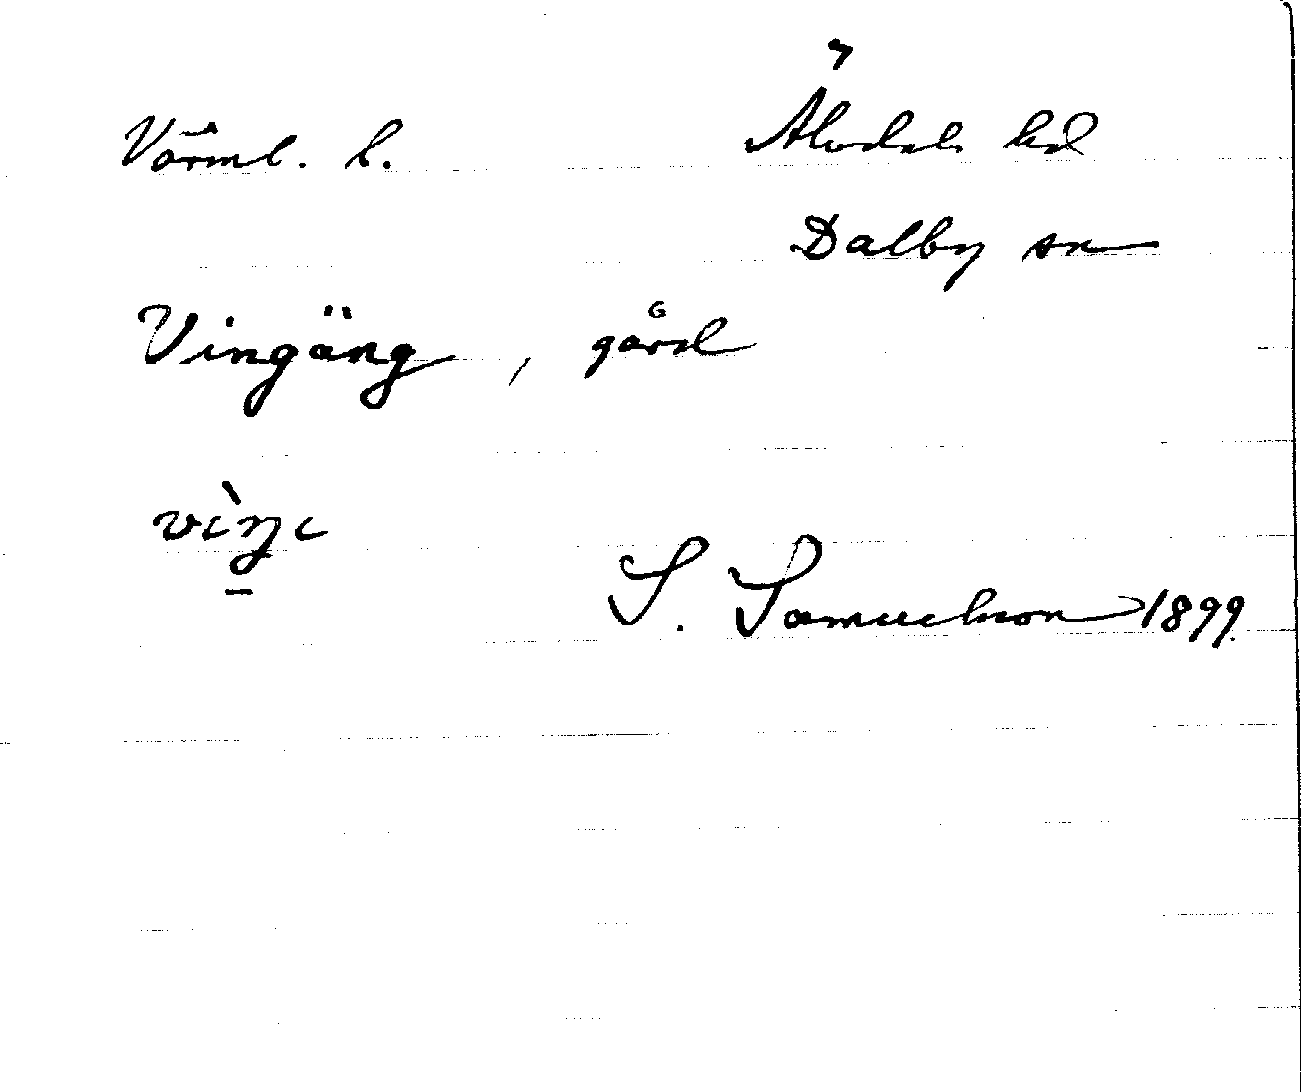 Värml. l. Älvdals hd
Dalby sn
Vingäng, gård
vìŋı
S. Samuelsson 1899.